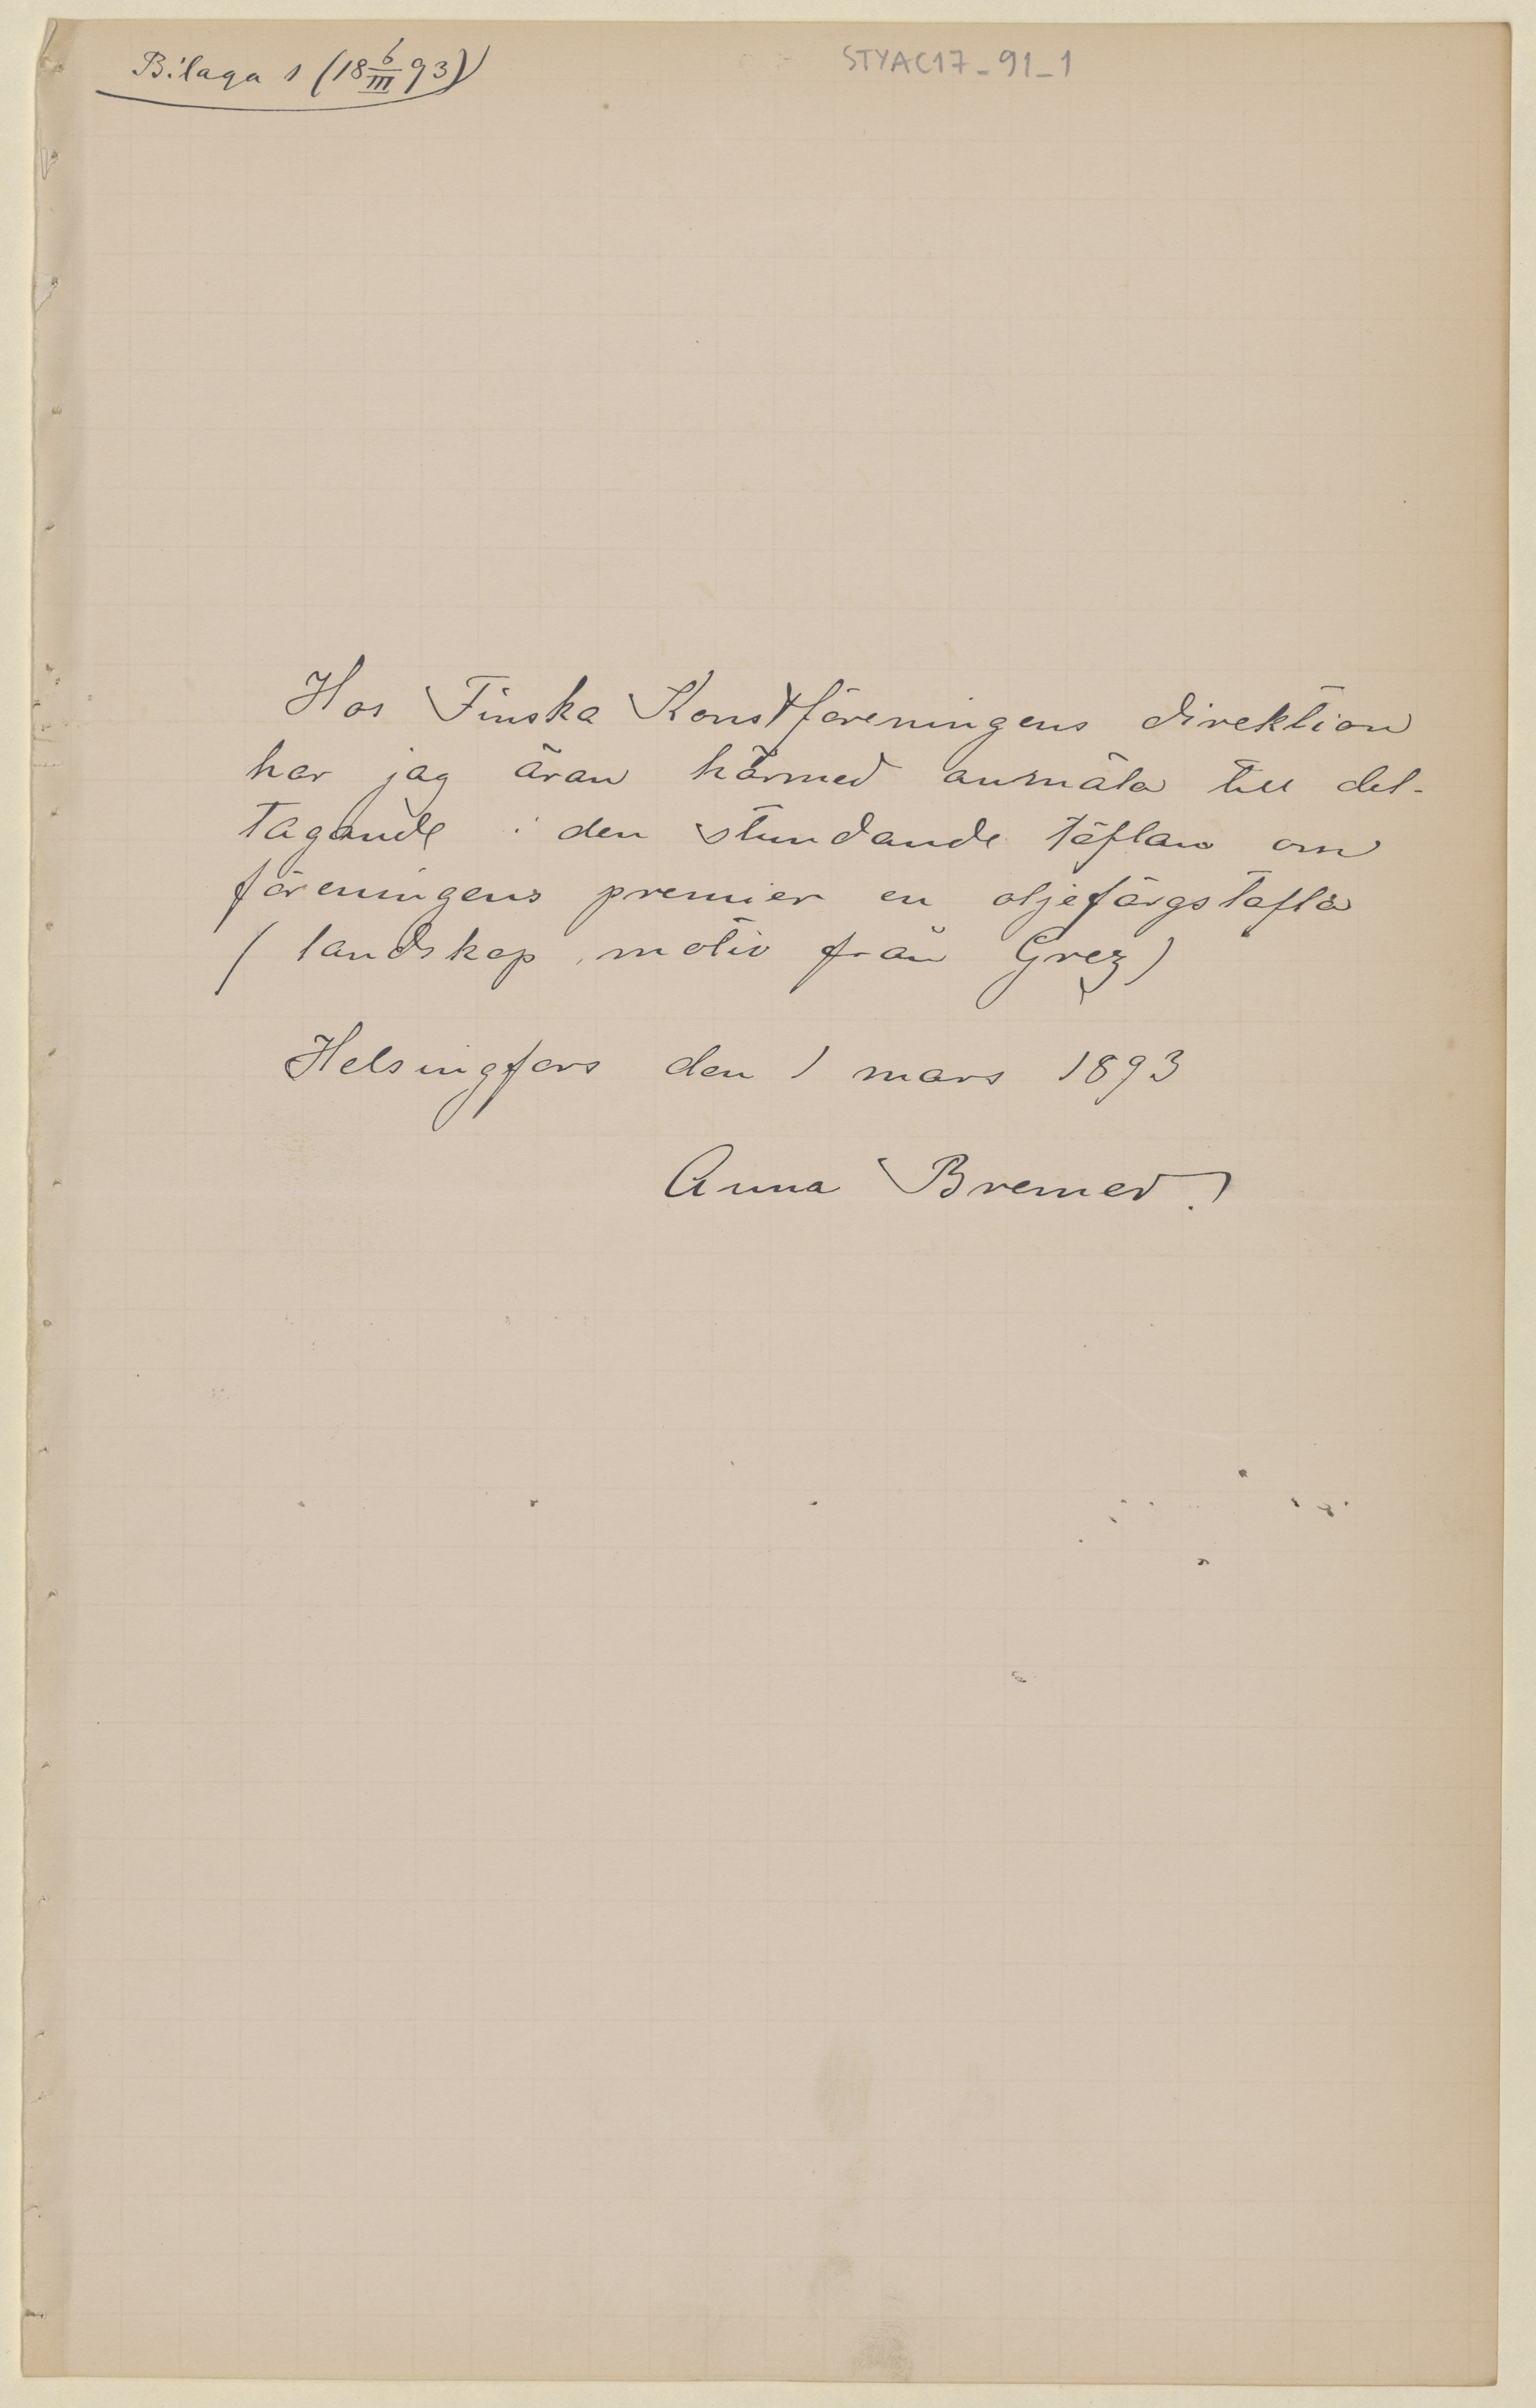 Bilaga 1 (18 6/III 93)
STYAC17_91_1
Hos Finska Konstföreningens direktion
har jag äran härmed anmäla till del-
tagande i den stundande täflan om
föreningens premier en oljefärgstafla
(landskap, motiv från Grez)
Helsingfors den 1 mars 1893
Anna Bremer.